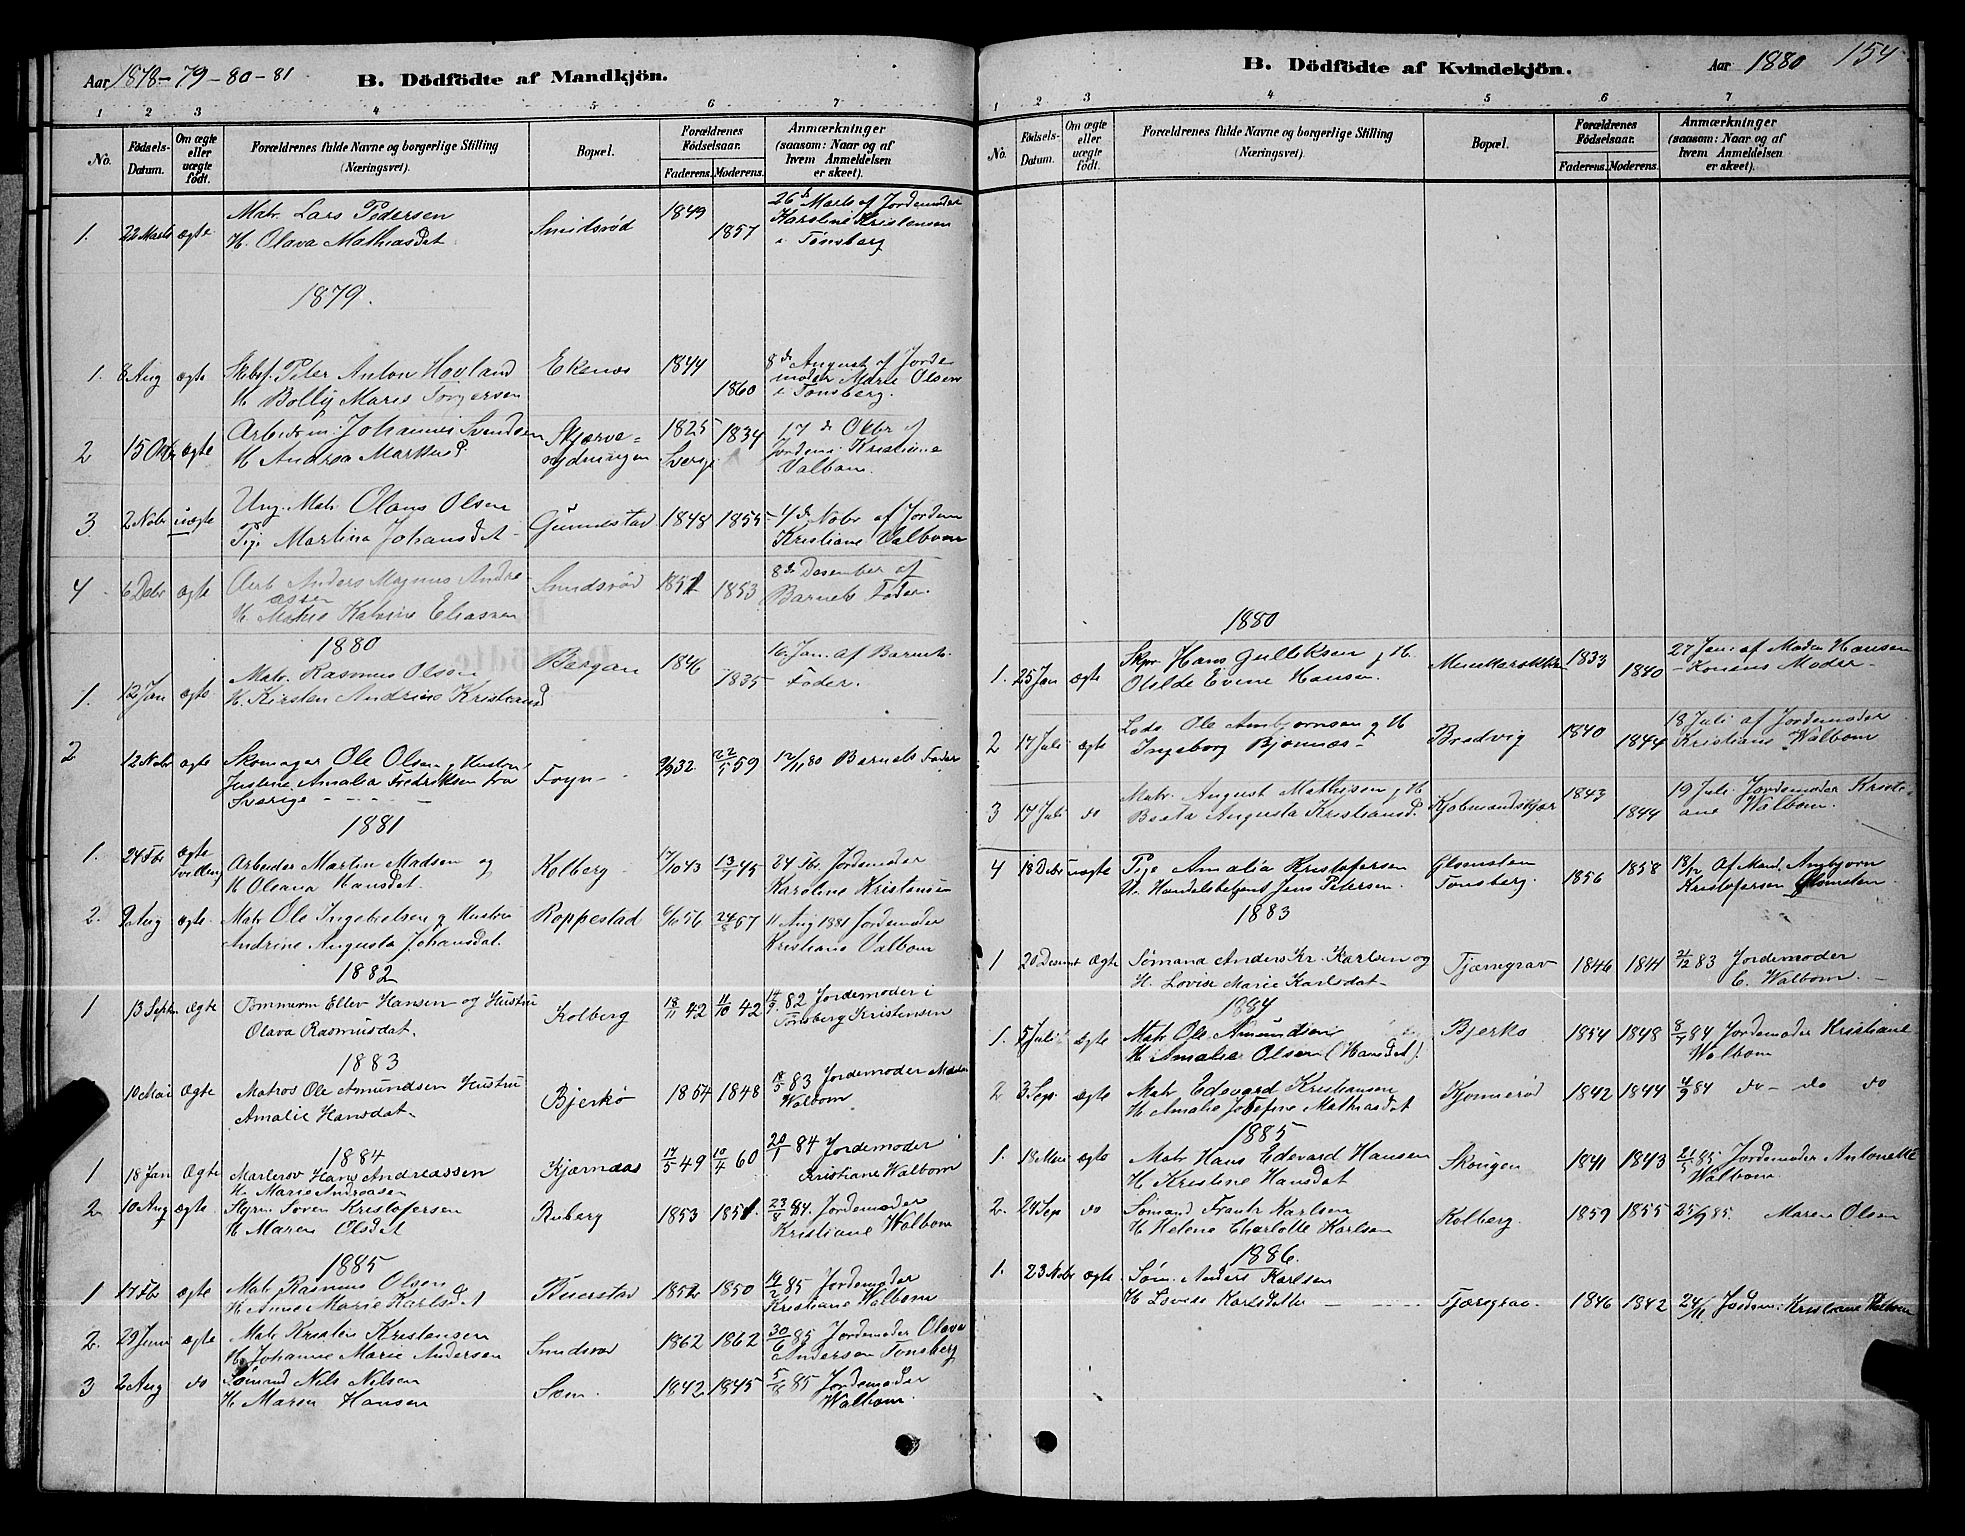 Aar 1878-79-80-81
B. Dödfödte af Mandkjön.
1 2 3 4 5 6 7
No.
Födsels-Datum.
Om ægte eller uægte födt.
Forældrenes fulde Navne og borgerlige Stilling (Næringsvei).
Bopæl.
Forældrenes Födselsaar.
Faderens. Moderens.
Anmærkninger (saasom: Naar og af hvem Anmeldelsen er skeet).
1. 22 Marts ægte Matr. Lars Pedersen 1849 26de Marts af Jordemoder
H. Olava Mathiasdat Smidsrød 1857 Karoline Kristensen
i Tønsberg
1879.
1. 8 Aug ægte Skbef. Peter Anton Hovland Ekenes 1844 8de August af Jorde
H. Bolly Marie Torgersen 1860 moder Marie Olsen
i Tønsberg.
2 15 Okbr ægte Arbeidsm: Johannes Svendsen Skjærve= 1825 1834 17de Okbr af
H Andrea Markusd. rydningen Sverige Jordem: Kristiane
Valbom.
3. 2 Nobr uægte Ung. Matr Olaus Olsen Gunnestad 1848 1855 4de Nobr af Jordem
Pige Martina Johansdat Kristiane Valbom
4 6 Debr ægte Arb Anders Magnus Andre Smidsrød 1851 1853 8de Desember af
assen Barnets Fader.
H. Mathie Katrine Eliassen
1880
1. 12 Jan ægte Matr. Rasmus Olsen Bergan 1846 16 Jan. af Barnets
H. Kirsten Andrine Kristiansd 1835 Fader.
2 12 Nobr ægte Skomager Ole Olsen og Hustru Foyn 32 22/5 59 12/11 80 Barnets Fader
Justine Amalia Fredriksen fra
Sverige
1881
1. 24 Fbr ægte Arbeider Martin Madsen og Kolberg 17/10 43 13/1 45 24 Fbr. Jordemoder
tvilling H Oleana Hansdat. Karoline Kristensen
2. 9 Aug ægte Matr Ole Ingebretsen og Hustru Roppestad 6/11 56 57 11 Aug 1881 Jordemoder
Andrine Augusta Johansdat. Kristiane Valbom
1882
1 13 Septr Ægte Tømmerm Ellev Hansen og Hustru Kolberg 18/11 42 11/10 42 14/9 82 Jordemoder i
Olava Rasmusdat. Tønsberg Kristensen
1883
10 Mai Ægte Matros Ole Amundsen Hustru Bjerkø 1854 1848 83 Jordemoder
Amalie Hansdat. Walbom
1884
1 18 Jan Ægte Hans Andreassen Kjærnaas 17/5 49 10/4 60 20/1 84 Jordemoder
H. Marie Andreasen Kristiane Walbom
2. 10 Aug ægte Styrm Soren Kristofersen Ruberg 1853 1851. 23/8 84. Jordemoder
H Maren Olsdat Kristiane Walbom
1885
1 17 Fbr ægte Matr Rasmus Olsen Buerstad 1852 1850 19/2 85 Jordemoder
H. Anne Marie Karlsdat Kristiane Walbom
2. 29 Juni ægte Matr Kristen Kristensen Smidsrød 1862 1862 30/6 85 Jordemoder Olava
H. Johanne Marie Andersen Andersen Tønsberg
3 2 Aug do Sømand Nils Nilsen Sem. 1842 1845 5/8 85 Jordemoder
H Maren Hansen Walbom
B. Dödfödte af Kvindekjön.
Aar 1880 154
1 2 3 4 5 6 7
No.
Födsels-Datum.
Om ægte eller uægte födt.
Forældrenes fulde Navne og borgerlige Stilling (Næringsvei).
Bopæl.
Forældrenes Födselsaar.
Faderens. Moderens.
Anmærkninger (saasom: Naar og af hvem Anmeldelsen er skeet).
1880
1. 25 Jan ægte Skpr Hans Gulliksen og H. 1833 27 Jan: af Hansen
Otilde Evine Hansen. 1840 Konens Moder
2 17 Juli ægte Lods Ole Ambjørnsen og H Bredvig 1840 18 Juli af Jordemoder
Ingeborg Bjønnes 1844 Kristiane Walbom
3 17 Juli do Matr. August Mathisen og H Kjøbmandskjær 1843 19 Juli Jordemoder Kristi-
Beata Augusta Kristiansd. 1844 ane Walbom.
4 18 Debr uægte Pige Amalia Kristofersen Glomsten 1858 18/12 Af Mand. Anbjørn
U. Handelsbetjent Jens Petersen. Tønsberg. 1856 Kristofersen Glomsten
1883
1 20 Desembr Ægte Sømand Anders Kr. Karlsen og Tjæregrav 1846 1841 21/12 83 Jordemoder
H. Lovise Marie Karlsdat C. Walbom.
1884
1. 5 Juli ægte Matr Ole Amundsen Bjerkø 1854 1848 8/7 84 Jordemoder Kristiane
H. Amalie Olsen (Hansdat). Walbom
2 3 Sep. ægte Matr Edevard Kristiansen Kjønnerød 1842 1844 4/9 84 do do do
H. Amalie Josefine Mathiasdat
1885
1. 18 Mai ægte Matr Hans Edevard Hansen Skougen 1841 1843 21/5 85 Jordemoder Antonette
H Kristine Hansdat Walbom.
2. 24 Sep do Sømand Frantz Karlsen Kolberg. 1859 1855 25/9 85. Maren Olsen
H Helene Charlotte Karlsen
1886.
1. 23 Nobr ægte Søm. Anders Karlsen
H Lovise Karlsdatter Tjæregrav 1846 1842 24/11 Jordem: Kristiane Walbom